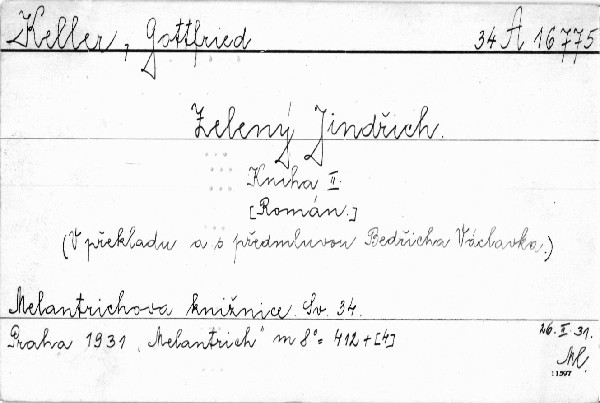 Keller, Gottfried 34 A 16775
Zelený Jindřich.
Kniha II.
[Román.]
(V překladu a s předmluvou Bedřicha Václavka.)
Melantrichova knižnice. Sv. 34.
Praha 1931 „Melantrich“ m 8° = 412 + [4]
26. II. 31.
Ml.
11597